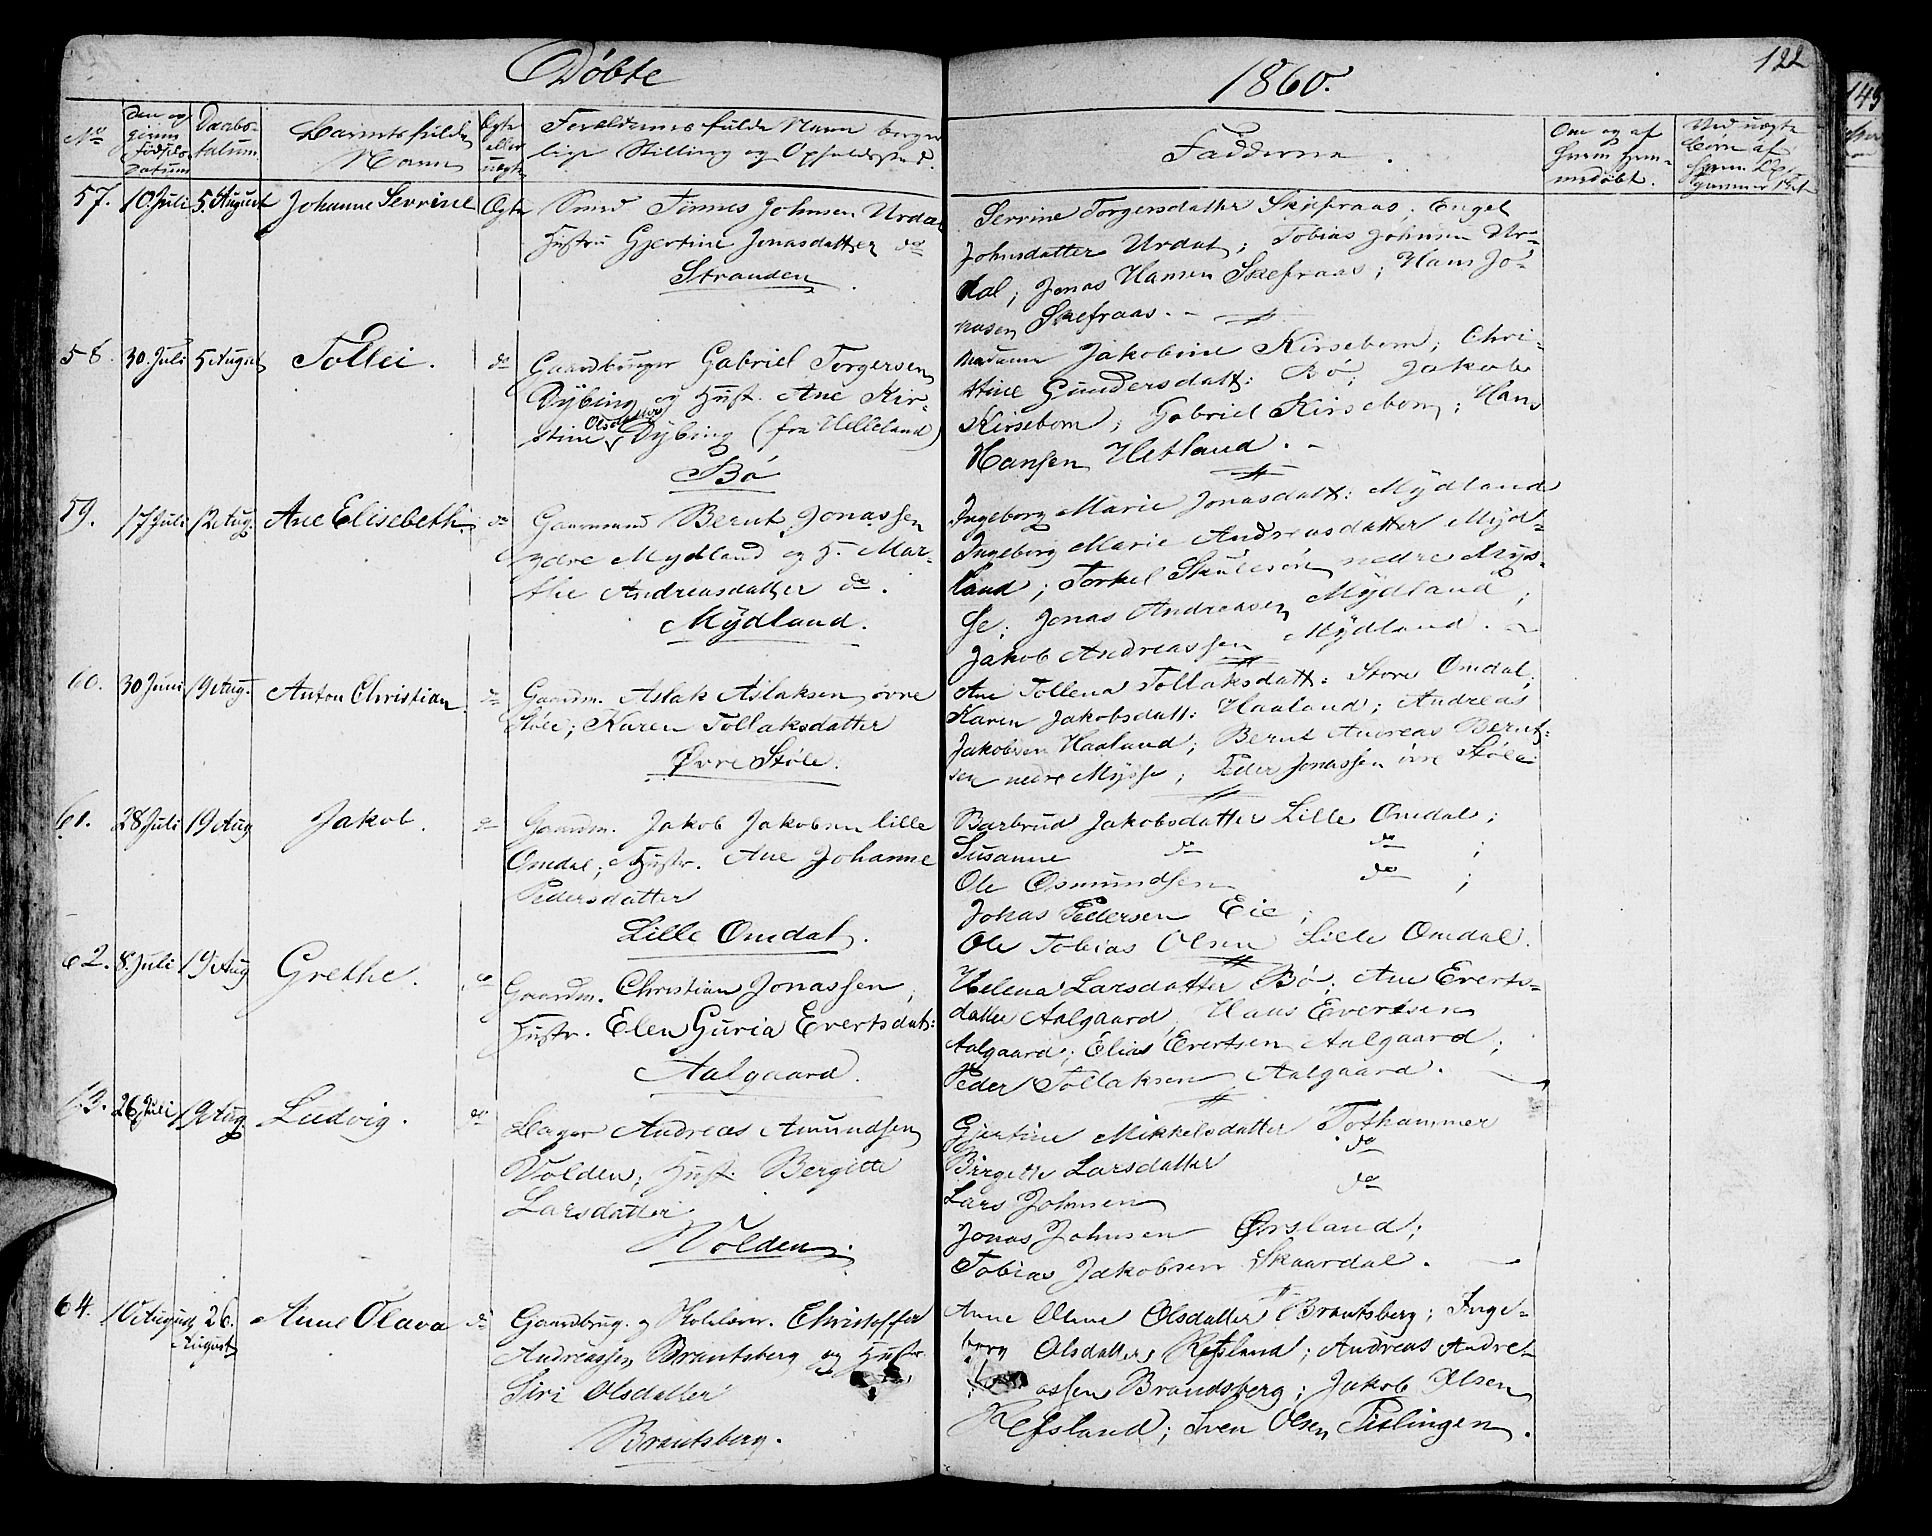 Døbte
1860.
122
149
No
Den og
Daabs-
datum
Barnets fulde
Navn
Ægte
eller
uægte
Forældrenes fulde Navn borger-
lige Stilling og Opholdssted.
Fadderne.
Om og af
hvem hjem-
medøbt.
Ved uægte
Børn af
57. 10 Juli 5 August Johanne Serine Ægte Smed Tønnes Johnsen Urdal
Hustru Gjertine Jonasdatter do
Stranden
Serine Torgersdatter Skefraas; Engel
Johnsdatter Urdal; Tobias Johnsen Ur-
dal; Jonas Hansen Skefraas; Hans Jo-
nasen Skefraas.
58. 30 Juli 5 August Tollei. do Gaardbruger Gabriel Torgersen
Dybing og Hust. Ane Kir-
stine Olsdatter Dybing (fra Helleland)
Bø
Madame Jakobine Kirsebom; Chri-
stine Gundersdatt: Bø; Jakob
Kirsebom; Gabriel Kirsebom; Hans
Hansen Hetland.
59. 17 Juli 12 Aug. Ane Elisabeth do Gaardmand Bernt Jonassen
ydre Mydland og H. Mar-
the Andreasdatter do.
Mydland.
Ingeborg Marie Jonasdatt: Mydland
Ingeborg Marie Andreasdatter Myd-
land; Torkel Skulesøn nedre Mys-
se; Jonas Andreasen Mydland;
Jakob Andreassen Mydland.
60. 30 Juni 19 Aug. Anton Christian do Gaardm. Aslak Aslaksen øvre
Støle; Karen Tollaksdatter
Øvre Støle.
Ane Tollena Tollaksdatt: Store Omdal;
Karen Jakobsdatt: Haaland; Andreas
Jakobsen Haaland; Bernt Andreas Bernt-
sen nedre Mysse; Peder Jonassen øvre Støle
61. 28 Juli 19 Aug Jakob. do Gaardm. Jakob Jakobsen lille
Omdal; Hustr. Ane Johanne
Pedersdatter
Lille Omdal.
Barbrud Jakobsdatter Lille Omdal;
Susanne do do;
Ole Osmundsen do;
Johas Pedersen Eie;
Ole Tobias Olsen Lille Omdal.
62. 8. Juli 19 Aug Grethe. do Gaardm. Christian Jonassen;
Hustr. Elen Guria Evertsdat:
Aalgaard.
Helena Larsdatter Bø; Ane Everts-
datter Aalgaard, Hans Evertsen
Aalgaard; Elias Evertsen Aalgaard;
Peder Tollaksen Aalgaard.
63. 26 Juli 19 Aug Ludvig. do Bager Andreas Amundsen
Volden; Hust. Bergitte
Larsdatter
Volden.
Gjertine Mikkelsdatter Tothammer
Birgitte Larsdatter do
Lars Johnsen do
Jonas Johnsen Ørsland;
Tobias Jakobsen Skaardal.
64. 10 August 26. August Anne Olava do Gaardbrug. og Christoffer
Andreassen Brantsberg og Hustr
Siri Olsdatter
Brantsberg.
Anne Oline Olsdatter Brantsberg; Inge-
borg Olsdatter Refsland; Andreas Andre-
assen Brandsberg; Jakob Olsen
Refsland; Sven Olsen Tislingen.